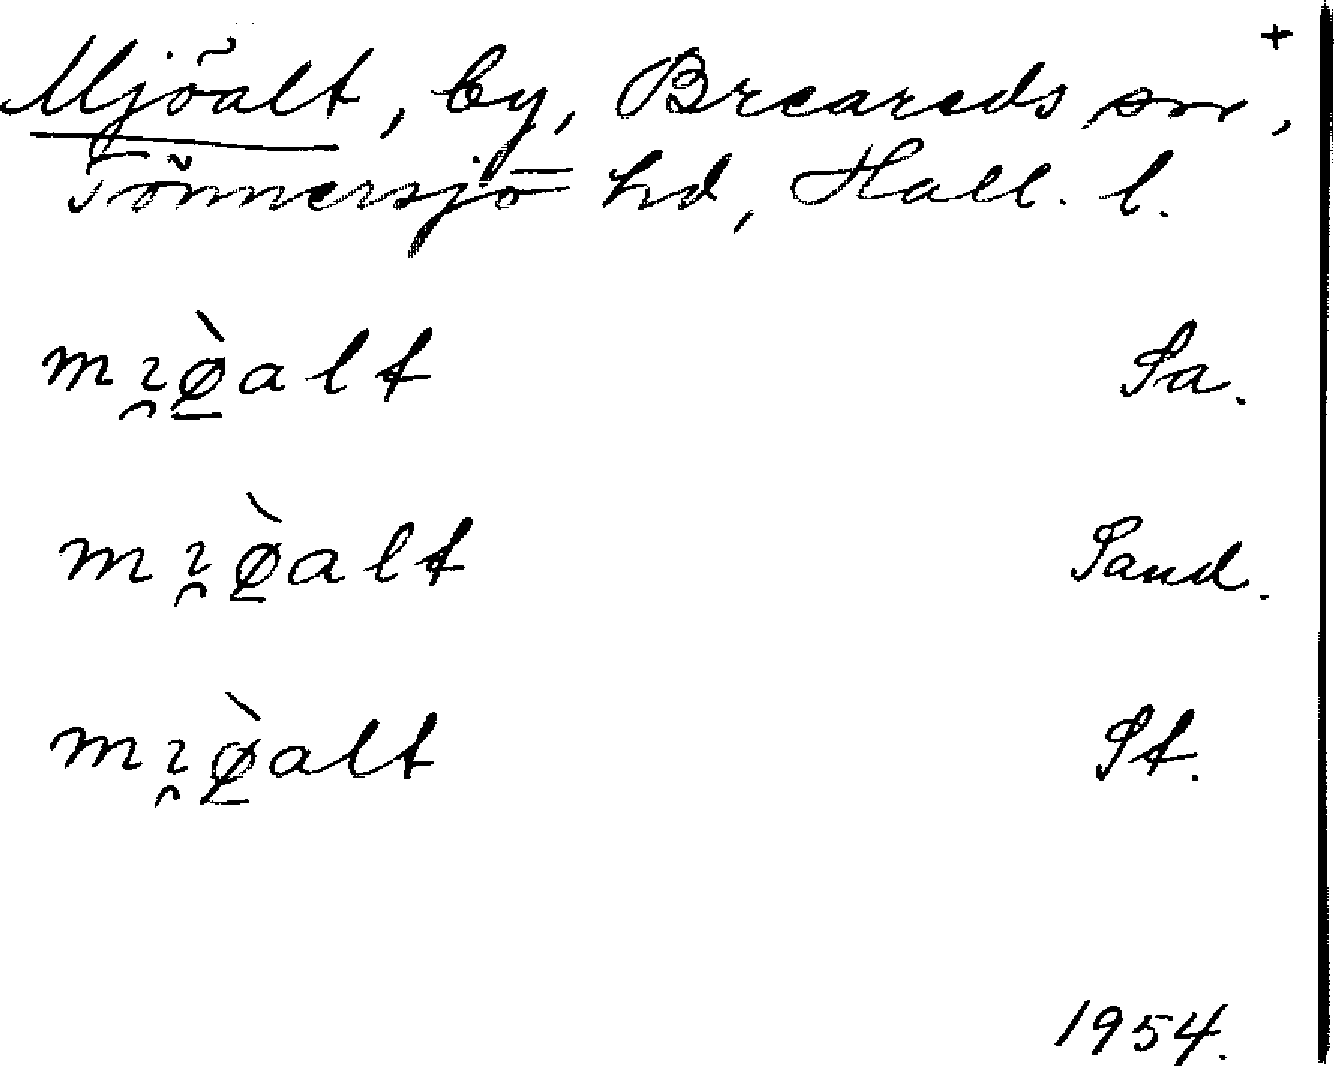 +
Mjöalt, by, Breareds sn,
Tönnersjö hd, Hall. l.
mı̯ø̠̀alt Sa.
mı̯ø̠̀alt Sand.
mı̯ø̠̀alt St.
1954.